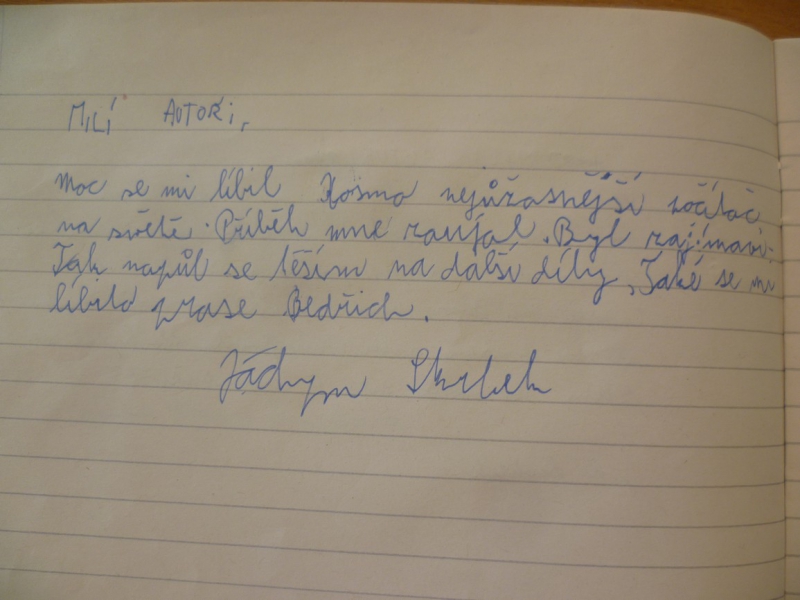 MILÍ AUTOŘI,
moc se mi líbil Kosmo nejúžasnější počítač
na světě. Příběh mne zaujal. Byl zajímaví.
Tak napůl se těším na další díly. Také se mi
líbilo prase Bedřich.
Jáchym Skrbek